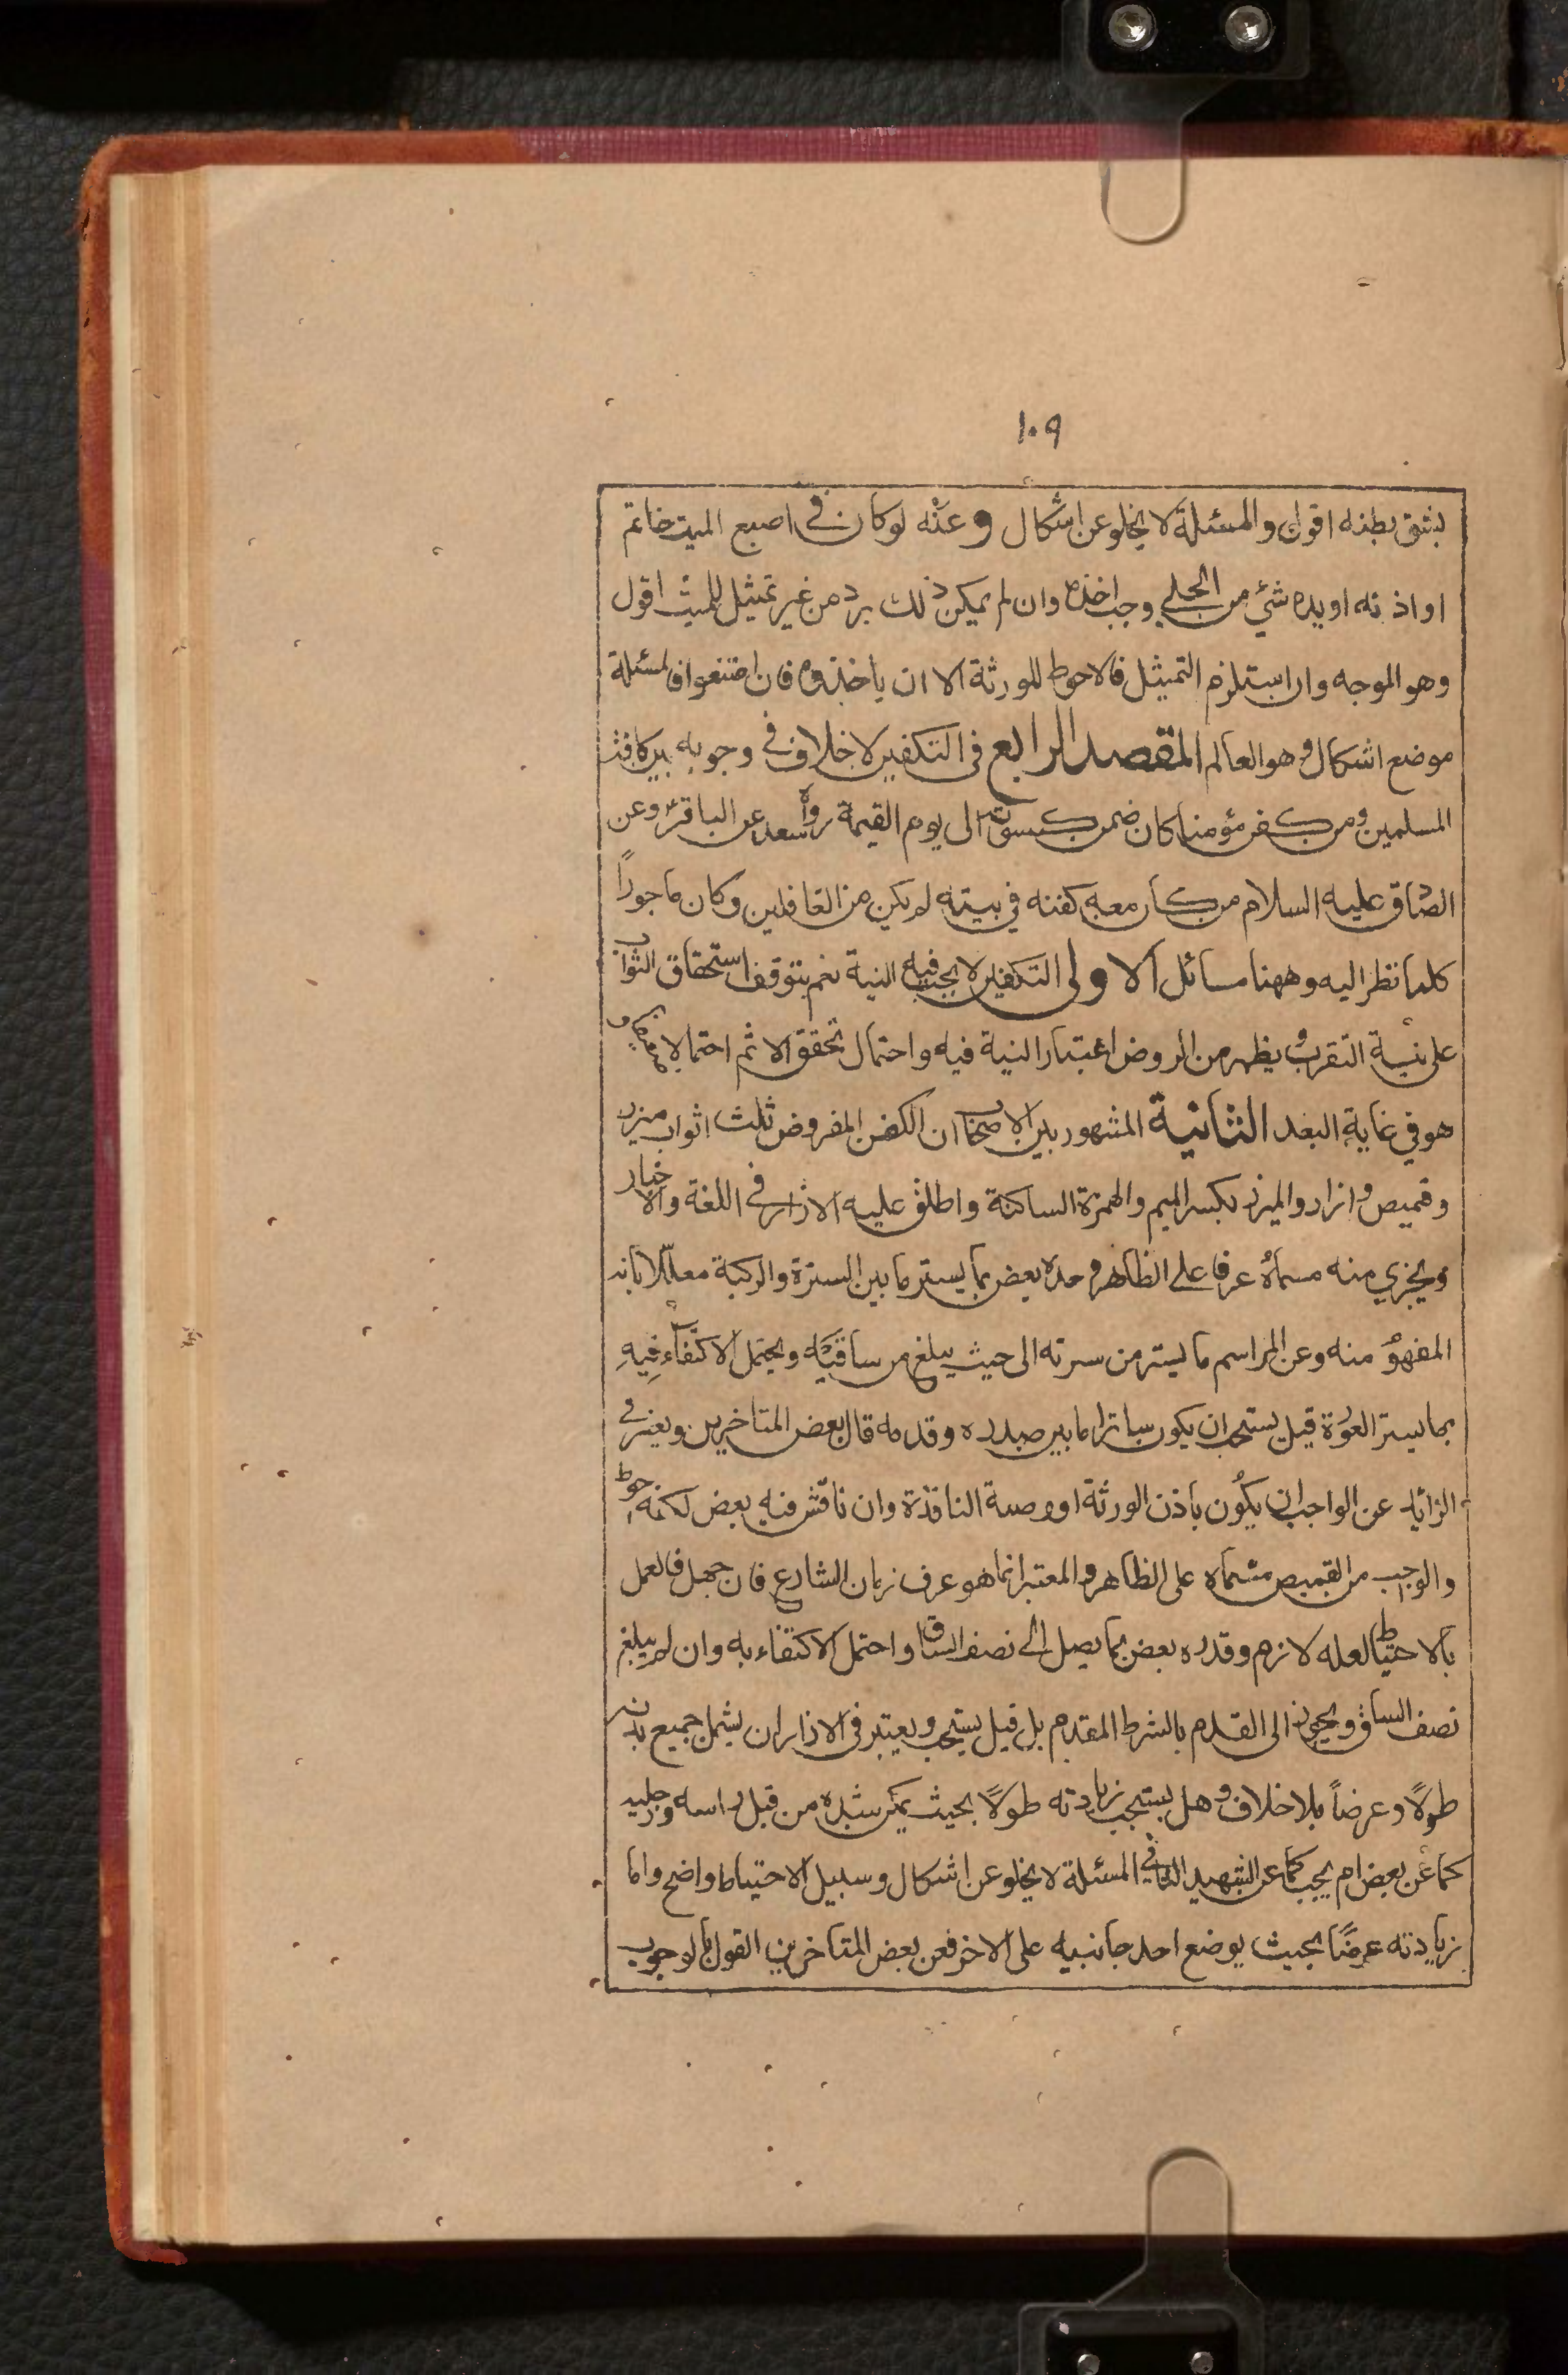 ١٠٩
بشق بطنه اقول والمسئلة لا يخلو عن اشكال وعنه لو كان في اصبع الميت خاتم
او اذنه او يده شئ من الحلي وجب اخذه وان لم يمكن ذلك برد من غير تمثيل للميت اقول
وهو الموجه وان استلزم التمثيل فالاحوط للورثة الا ان ياخذوه فان امتنعوا فالمسئلة
موضع اشكال وهو العالم المقصد الرابع في التكفين لا خلاف في وجوبه بين كافة
المسلمين ومن كفن مؤمنا كان ضمن كسوته الى يوم القيمة رواه سعد عن الباقر وعن
الصادق عليه السلام من كان معه كفنه في بيته لم يكن من الغافلين وكان ماجوراً
كلما نظر اليه وههنا مسائل الاولى التكفين لا يجب فيه النية نعم يتوقف استحقاق الثواب
على نية التقرب ويظهر من الروض اعتبار النية فيه واحتمال تحقق الاثم احتمالا
هو في غاية البعد الثانية المشهور بين الاصحاب ان الكفن المفروض ثلث اثواب ميزر
وقميص وازار والميزر بكسر الميم والهمزة الساكنة واطلق عليه الازار في اللغة والاخبار
ويجزي منه مسماه عرفا على الظاهر وحده بعض بما يستر ما بين السرة والركبة معللا بانه
المفهوم منه وعن المراسم ما يستر من سرته الى حيث يبلغ من ساقيه ويحتمل الاكتفاء فيه
بما يستر العورة قيل يستحب ان يكون ساترا ما بين صدره وقدمه قال بعض المتاخرين ويعتبر في
الزائد عن الواجب ان يكون باذن الورثة او وصية النافذة وان ناقش فيه بعض لكنه احوط
والواجب من القميص مسماه على الظاهر والمعتبر انما هو عرف زمان الشارع فان جهل فالعمل
بالاحتياط لعله لازم وقدره بعض بما يصل الى نصف الساق واحتمل الاكتفاء به وان لم يبلغ
نصف الساق ويجوز الى القدم بالشرط المقدم بل قيل يستحب ويعتبر في الازار ان يشمل جميع بدنه
طولاً وعرضاً بلا خلاف وهل يستحب زيادته طولاً بحيث يمكن شده من قبل راسه ورجليه
كما عن بعض ام يجب كما عن الشهيد الثاني المسئلة لا يخلو عن اشكال وسبيل الاحتياط واضح واما
زيادته عرضاً بحيث يوضع احد جانبيه على الاخر فعن بعض المتاخرين القول بالوجوب